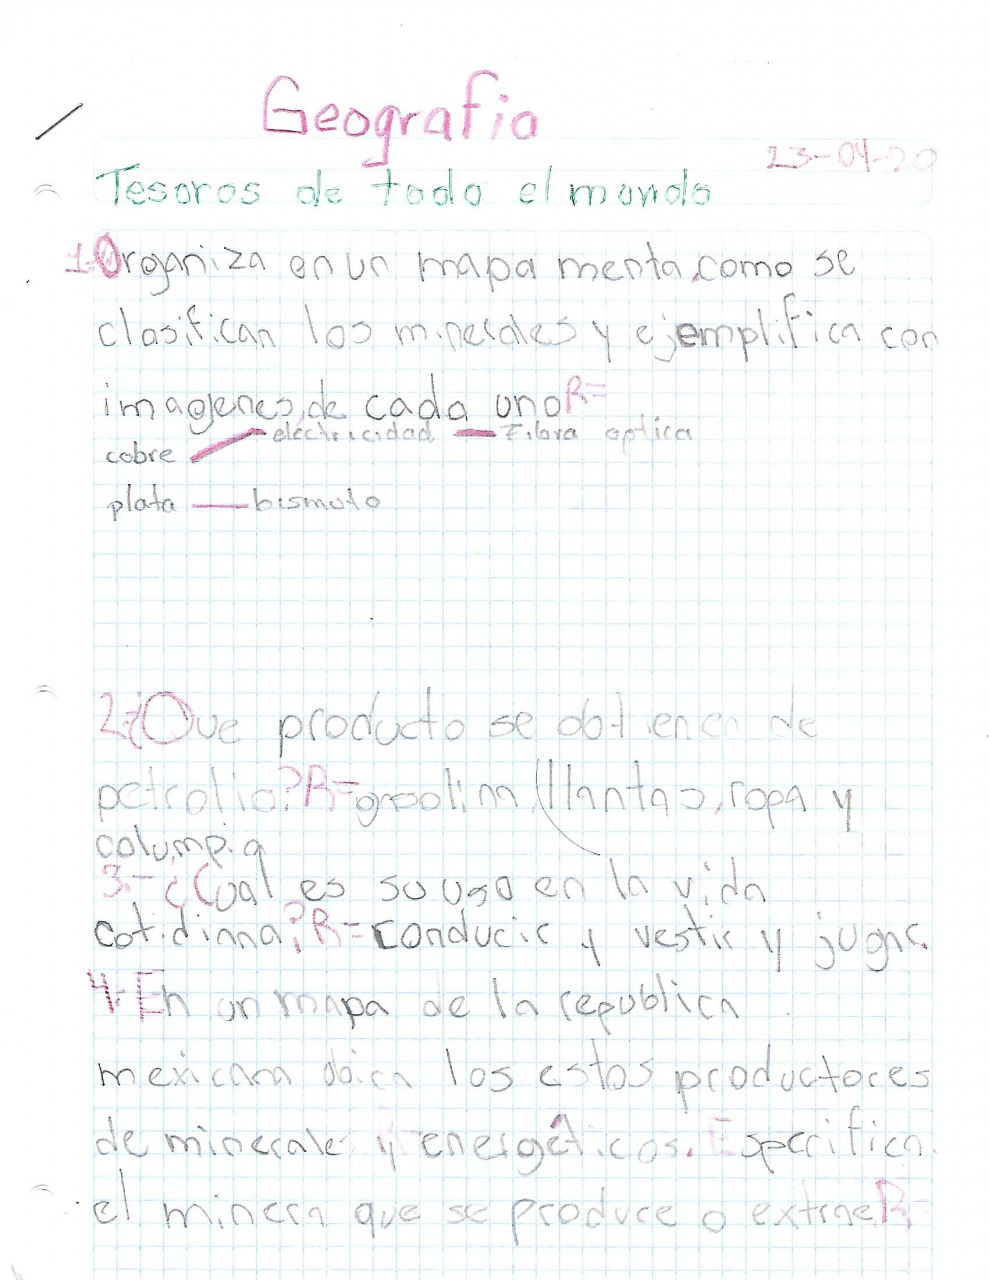 Geografia
23-04-20
Tesoros de todo el mundo
1-Organiza en un mapa menta, como se
clasifican los minerales y ejemplifica con
imagenes, de cada uno R=
cobre — eléctricidad — Fibra optica
plata — bismuto
2-¿Que producto se obtienen de
petrolio? R= gasolina, llantas, ropa y
columpia
3.-¿Cual es su uso en la vida
cotidiana? R= conducir y vestir y jugar.
4-En un mapa de la republica
mexicana obica los estos productores
de minerales y energéticos. Especifica
el minera que se produce o extrae R=